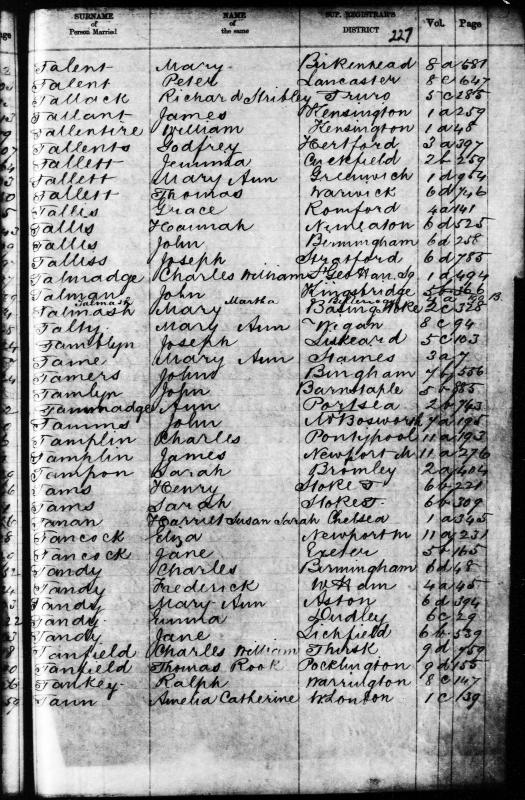 SURNAME of Person Married NAME of the same SUP. REGISTRAR'S DISTRICT Vol. Page
227
Talent Mary Birkenhead 8 a 681
Talent Peter Lancaster 8 c 647
Tallack Richard Stribley Truro 5 c 285
Tallant James Kensington 1 a 259
Tallentire William Kensington 1 a 48
Tallents Godfrey Hertford 3 a 397
Tallett Jemima Cuckfield 2 b 259
Tallett Mary Ann Greenwich 1 d 964
Tallett Thomas Warwick 6 d 746
Tallis Grace Romford 4 a 141
Tallis Hannah Nuneaton 6 d 525
Tallis John Birmingham 6 d 258
Talliss Joseph Stratford 6 d 785
Talmadge Charles William St Geo Han. Sq. 1 d 494
Talman John Kingsbridge 5 b 366
Talmash Martha Billericay 4 a
Talmash Mary Basingstoke 2 c 328
Talty Mary Ann Wigan 8 c 94
Tamblyn Joseph Liskeard 5 c 103
Tame Mary Ann Staines 3 a 7
Tamers John Bingham 7 b 556
Tamlyn John Barnstaple 5 b 885
Tammadge Ann Portsea 2 b 743
Tamms John Mt Bosworth 7 a 195
Tamplin Charles Pontypool 11 a 193
Tamplin James Newport M 11 a 276
Tampon Sarah Bromley 2 a 404
Tams Henry Stoke T 6 b 221
Tams Sarah Stoke T. 6 b 309
Tanan Harriet Susan Sarah Chelsea 1 a 345
Tancock Eliza Newport M 11 a 231
Tancock Jane Exeter 5 b 165
Tandy Charles Birmingham 6 d 48
Tandy Frederick W Ham 4 a 45
Tandy Mary Ann Aston 6 d 394
Tandy Emma Dudley 6 c 29
Tandy Jane Lichfield 6 b 539
Tanfield Charles William Thirsk 9 d 759
Tanfield Thomas Rook Pocklington 9 d 155
Tankey Ralph Warrington 8 c 147
Tann Amelia Catherine W London 1 c 139